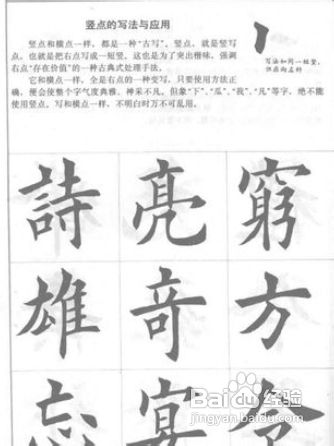 竖点的写法与应用
竖点和横点一样，都是一种“古写”。竖点，就是竖写
点，也就是把右点写成一短竖，这也是为了突出楷味，强调
右点“存在价值”的一种古典式处理手法。
它和横点一样，全是右点的一种变写，只要使用方法正
确，便会使整个字气度典雅、神采不凡。但象“下”、“瓜”、“我”、“凡”等字，绝不能
使用竖点，写和横点一样，不明白时万不可乱用。
写法如同一短竖，
但应向左斜
詩亮窮
雄奇方
忘宜
Baidu经验
jingyan.baidu.com